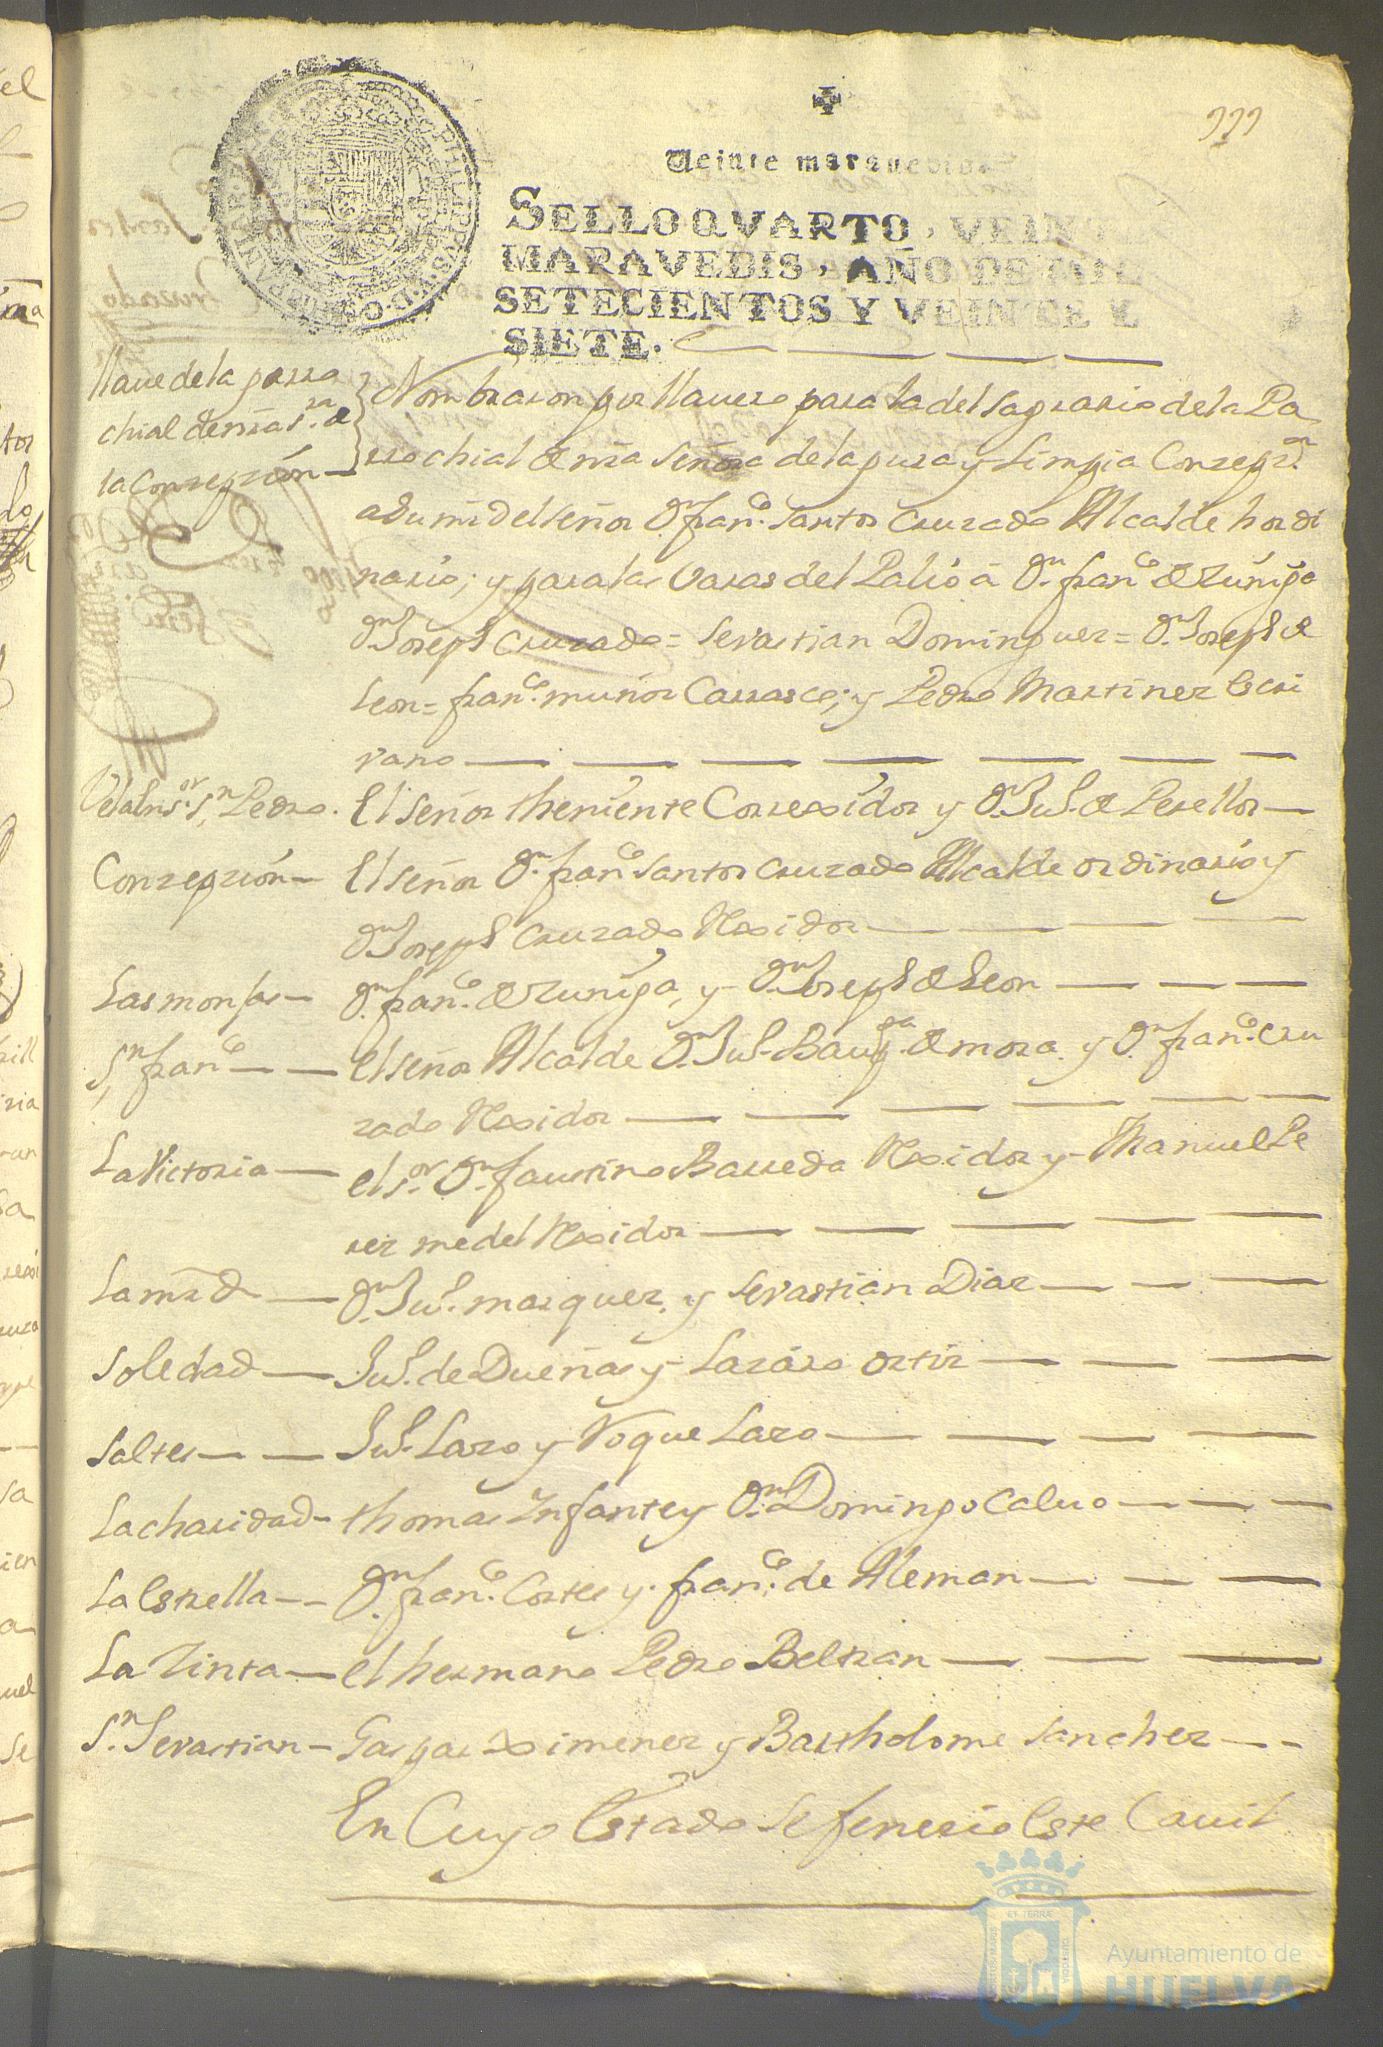 999
Veinte maravedis
SELLO QVARTO, VEINTE
MARAVEDIS, AÑO DE MIL
SETECIENTOS Y VEINTE Y
SIETE.
llaue de la parro
chial de nra s.ra de
la Conzepzión
Nombraron por llauero para la del sagrario de la Pa
rrochial de nra Señora de la pura y Limpia Conzepz.on
a su md el señor Dn. fran.co santos Cruzado Alcalde hordi
nario; y para las Varas del Palio á Dn. fran.co de Zúñiga
Dn. Joseph Cruzado = Sevastian Dominguez = Dn. Joseph de
Leon = fran.co muñoz Carrasco; y Pedro Martinez Escri
vano
Sn. Pedro. El señor theniente Correxidor y Dn. Ju.o de Perellos
Conzepzión El señor Dn. fran.co santos Cruzado Alcalde ordinario y
Dn. Joseph Cruzado Rexidor
Las monjas Dn. fran.co de Zuniga, y Dn. Joseph de Leon
Sn. fran.co El señor Alcalde Dn. Ju.o Baup.ta de mora y Dn. fran.co Cru
zado Rexidor
La Victoria el s.or Dn. faustino Barreda Rexidor y Manuel Pe
rez medel Rexidor
La mrd Dn. Ju.o marquez, y Sevastian Diaz
Soledad Ju.o de Dueñas y Lazáro ortiz
Saltes Ju.o Lazo y Roque Lazo
La charidad thomas Infante y Dn. Domingo Calvo
La Estrella Dn. fran.co Cortes y fran.co de Aleman
La Zinta el hermano Pedro Beltran
Sn. Sevastian Gaspar Ximenez y Bartholome Sanchez
En Cuyo Estado se fenezio Este Cauil
Ayuntamiento de
HUELVA